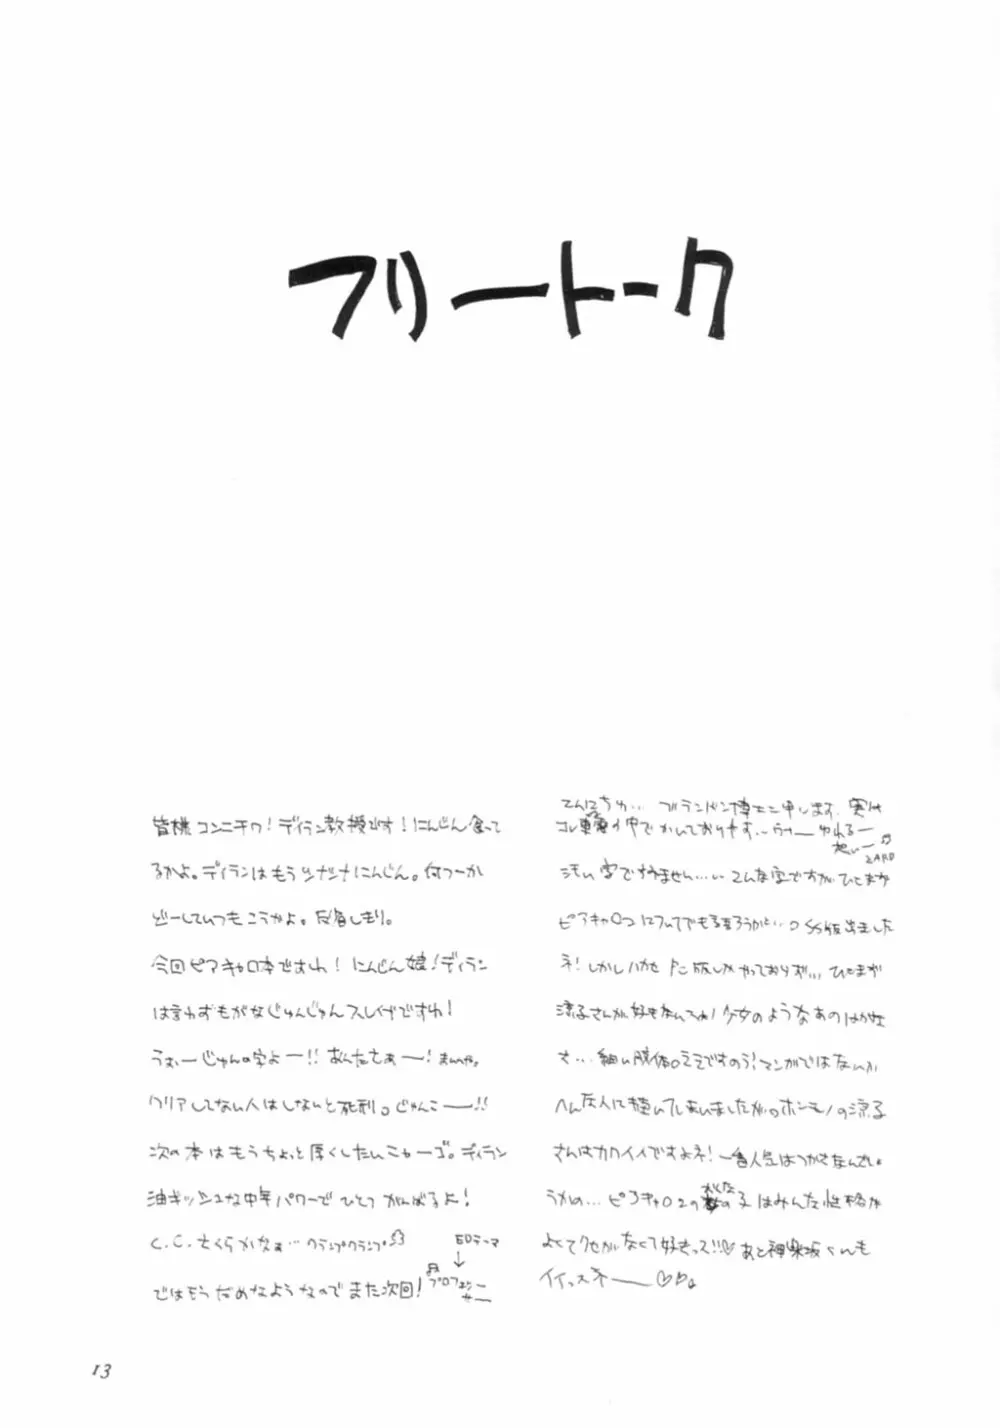 フリートーク
皆様コンニチワ!ディラン教授です!にんじん食って
るかよ。ディランはもうシナシナにんじん。何つーか
どーしていつもこうかよ。反省しきり。
今回ピアキャロ本ですわ!にんじん娘!ディラン
は言わずもがなじゅんじゅんスレイブですわ!
うぉぃーじゅんの字よー!!あんたさぁー!まんいや。
クリアしてない人はしないと死刑。じゅんこー!!
次の本はもうちょっと厚くしたいニャーゴ。ディラン
油ギッシュな中年パワーでひとつがんばるよ!
C.C.さくらかなぁ…クランプクランプ
EDテーマ
ではもうだめなようなのでまた次回!
プロフェッサー
てんにちわ… ブランドン博士と申します。実は
コレ車の中でかいております…ウナーゆれるー
想いー
ZARD
汚い字ですみません…こんな字ですがひとまず
ピアキャロ2についてでも語ろうかと…SS版出ました
ネ!しかしハカセ ドこ版しかやっておらず… ひとまず
涼子さんが好きなんですね!少女のようなあのはかな
さ…細い肢体。ええですのう!マンガではないか
へんな人に描いてしまいましたが。ホンモノの涼子
さんはカワイイですよネ!一番人気はつかさなんでしょ
うかの…ピアキャロ2の女の子はみんな性格が
よくてクセがなくて好きっス!!♡あと神楽坂くんも
イイっスネー♡
13